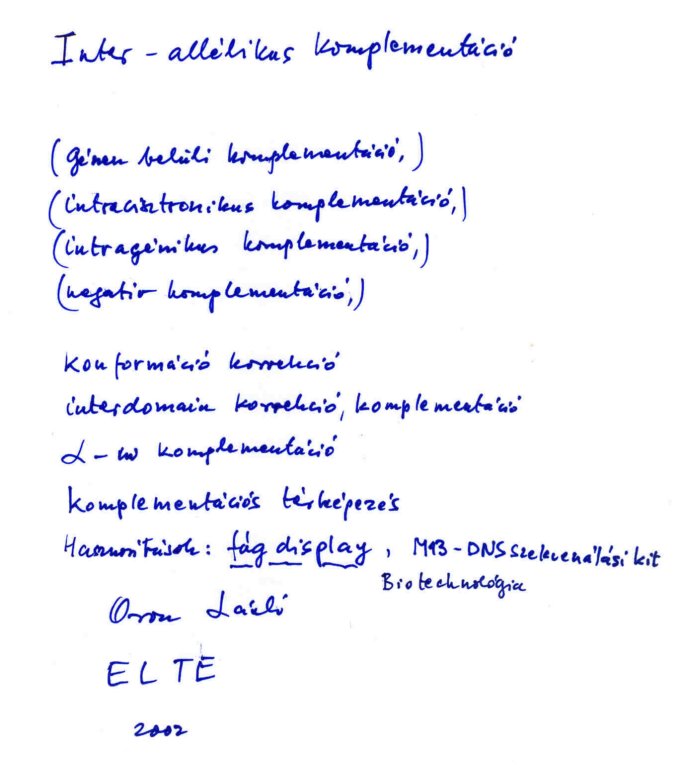 Inter-allélikus komplementáció
(génen belüli komplementáció,)
(intracisztronikus komplementáció,)
(intragénikus komplementáció,)
(negatív komplementáció,)
Konformáció korrekció
interdomain korrekció, komplementáció
α-ω komplementáció
Komplementációs térképezés
Hasznosítások: fág display, M13-DNS szekvenálási kit
Biotechnológia
Orosz László
ELTE
2002